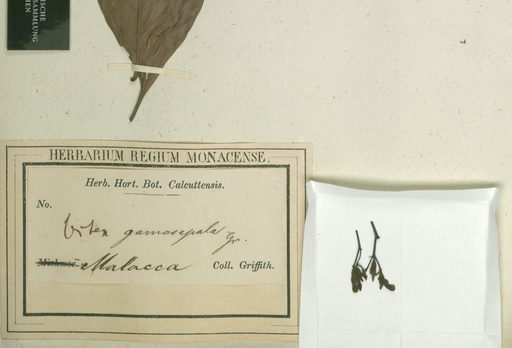 ISCHE
SAMMLUNG
HEN
HERBARIUM REGIUM MONACENSE.
Herb. Hort. Bot. Calcuttensis.
No.
Vitex gamosepala Gr.
Malacca Coll. Griffith.